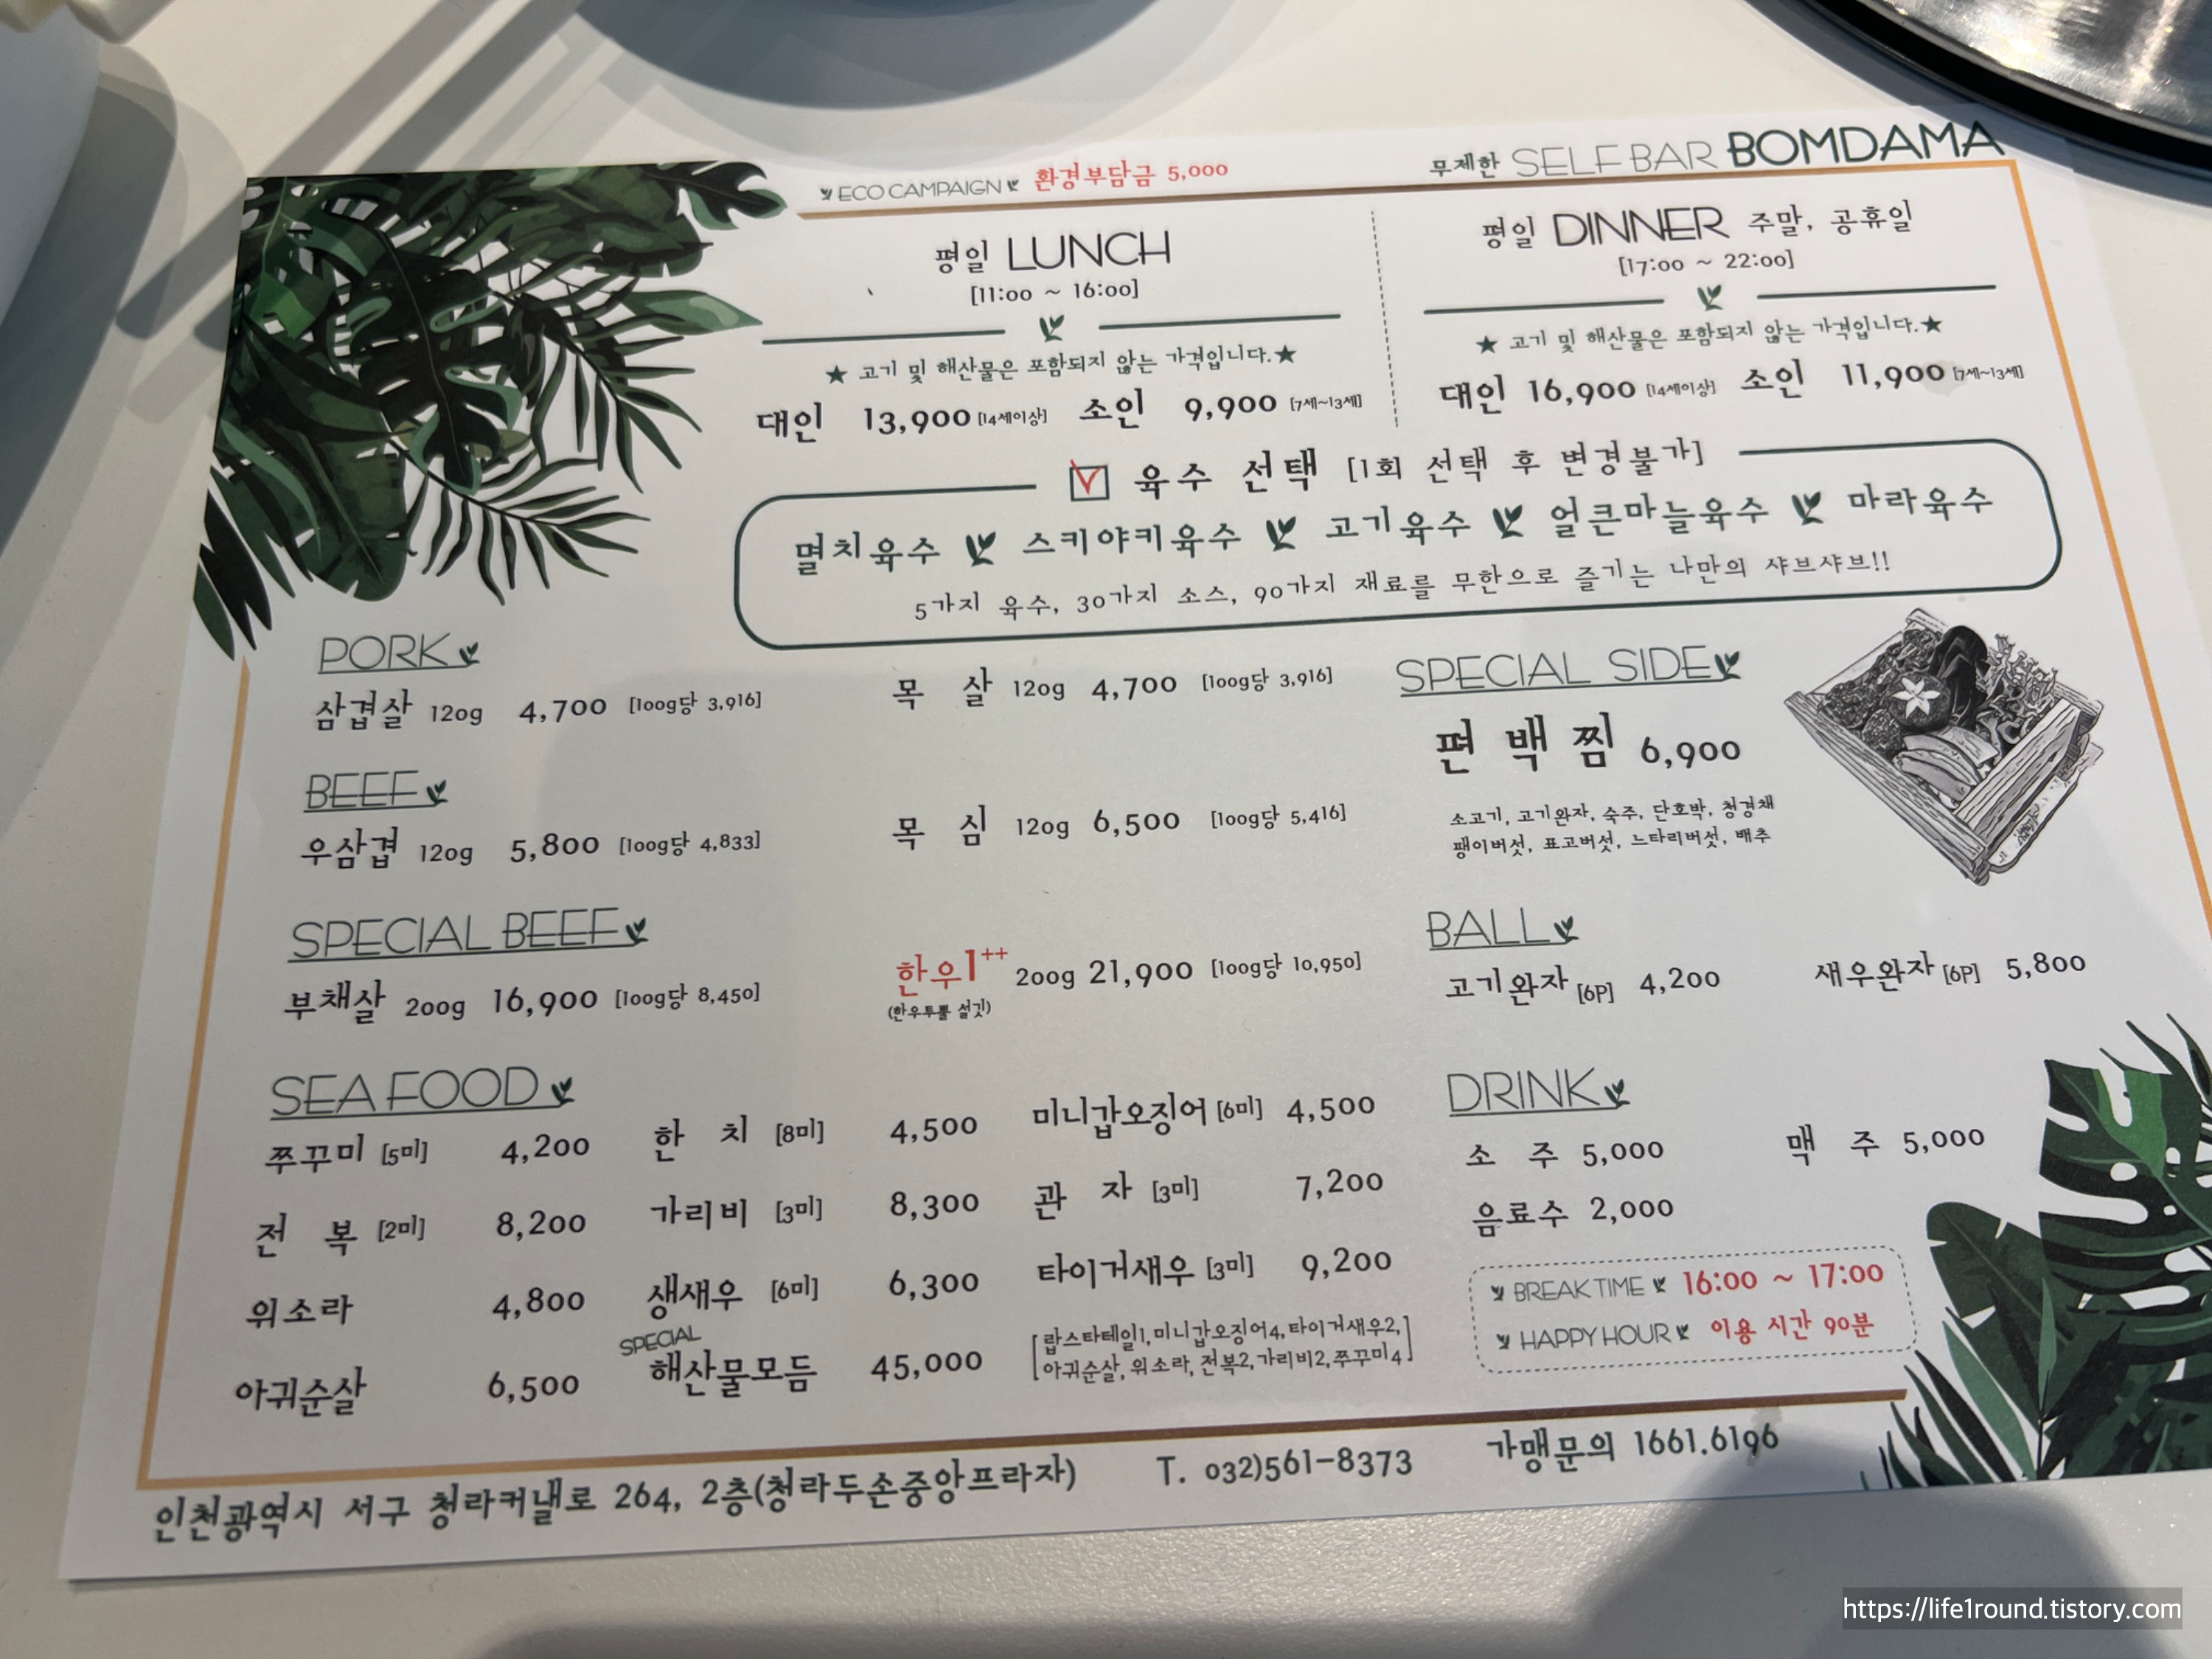 ECO CAMPAIGN 환경부담금 5,000
무제한 SELF BAR BOMDAMA
평일 LUNCH
[11:00 ~ 16:00]
★ 고기 및 해산물은 포함되지 않는 가격입니다.★
대인 13,900 [14세이상] 소인 9,900 [7세~13세]
평일 DINNER 주말, 공휴일
[17:00 ~ 22:00]
★ 고기 및 해산물은 포함되지 않는 가격입니다.★
대인 16,900 [14세이상] 소인 11,900 [7세~13세]
육수 선택 [1회 선택 후 변경불가]
멸치육수 스키야키육수 고기육수 얼큰마늘육수 마라육수
5가지 육수, 30가지 소스, 90가지 재료를 무한으로 즐기는 나만의 샤브샤브!!
PORK
삼겹살 120g 4,700 [100g당 3,916] 목 살 120g 4,700 [100g당 3,916]
BEEF
우삼겹 120g 5,800 [100g당 4,833] 목 심 120g 6,500 [100g당 5,416]
SPECIAL BEEF
부채살 200g 16,900 [100g당 8,450] 한우1++ 200g 21,900 [100g당 10,950]
(한우투뿔 설깃)
SEA FOOD
쭈꾸미 [5미] 4,200 한 치 [8미] 4,500 미니갑오징어 [6미] 4,500
전 복 [2미] 8,200 가리비 [3미] 8,300 관 자 [3미] 7,200
위소라 4,800 생새우 [6미] 6,300 타이거새우 [3미] 9,200
SPECIAL
아귀순살 6,500 해산물모듬 45,000
[랍스타테일1, 미니갑오징어4, 타이거새우2,
아귀순살, 위소라, 전복2, 가리비2, 쭈꾸미4]
SPECIAL SIDE
편백찜 6,900
소고기, 고기완자, 숙주, 단호박, 청경채
팽이버섯, 표고버섯, 느타리버섯, 배추
BALL
고기완자 [6P] 4,200 새우완자 [6P] 5,800
DRINK
소 주 5,000 맥 주 5,000
음료수 2,000
BREAK TIME 16:00 ~ 17:00
HAPPY HOUR 이용 시간 90분
인천광역시 서구 청라커낼로 264, 2층(청라두손중앙프라자) T. 032)561-8373 가맹문의 1661.6196
https://life1round.tistory.com